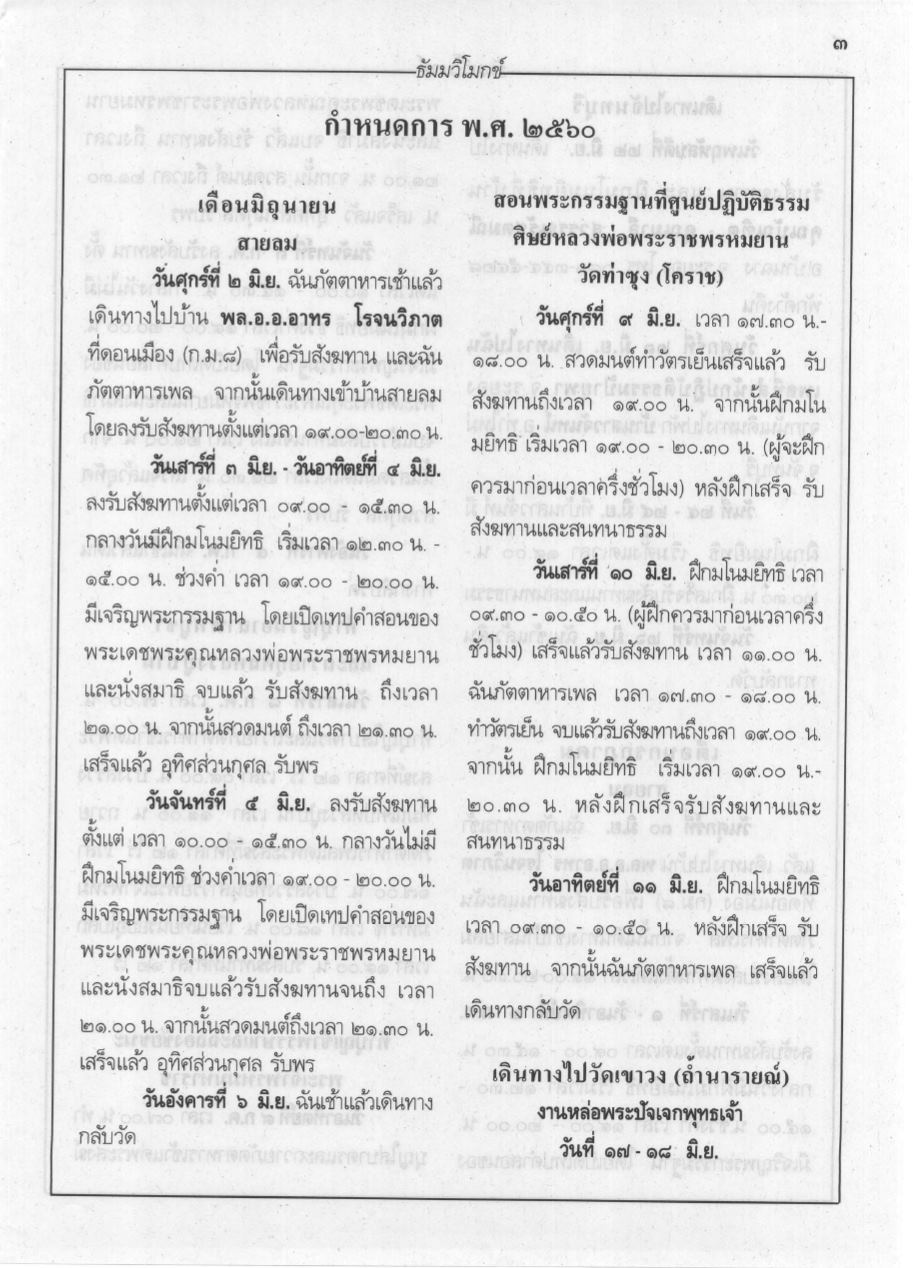 ๓
ธัมมวิโมกข์
กำหนดการ พ.ศ. ๒๕๖๐
เดือนมิถุนายน
สายลม
วันศุกร์ที่ ๒ มิ.ย. ฉันภัตตาหารเช้าแล้ว
เดินทางไปบ้าน พล.อ.อ.อาทร โรจนวิภาต
ที่ดอนเมือง (ก.ม.๘) เพื่อรับสังฆทาน และฉัน
ภัตตาหารเพล จากนั้นเดินทางเข้าบ้านสายลม
โดยลงรับสังฆทานตั้งแต่เวลา ๑๙.๐๐-๒๐.๓๐ น.
วันเสาร์ที่ ๓ มิ.ย. - วันอาทิตย์ที่ ๔ มิ.ย.
ลงรับสังฆทานตั้งแต่เวลา ๐๙.๐๐ - ๑๕.๓๐ น.
กลางวันมีฝึกมโนมยิทธิ เริ่มเวลา ๑๒.๓๐ น. -
๑๕.๐๐ น. ช่วงค่ำ เวลา ๑๙.๐๐ - ๒๐.๐๐ น.
มีเจริญพระกรรมฐาน โดยเปิดเทปคำสอนของ
พระเดชพระคุณหลวงพ่อพระราชพรหมยาน
และนั่งสมาธิ จบแล้ว รับสังฆทาน ถึงเวลา
๒๑.๐๐ น. จากนั้นสวดมนต์ ถึงเวลา ๒๑.๓๐ น.
เสร็จแล้ว อุทิศส่วนกุศล รับพร
วันจันทร์ที่ ๕ มิ.ย. ลงรับสังฆทาน
ตั้งแต่ เวลา ๑๐.๐๐ - ๑๕.๓๐ น. กลางวันไม่มี
ฝึกมโนมยิทธิ ช่วงค่ำเวลา ๑๙.๐๐ - ๒๐.๐๐ น.
มีเจริญพระกรรมฐาน โดยเปิดเทปคำสอนของ
พระเดชพระคุณหลวงพ่อพระราชพรหมยาน
และนั่งสมาธิจบแล้วรับสังฆทานจนถึง เวลา
๒๑.๐๐ น. จากนั้นสวดมนต์ถึงเวลา ๒๑.๓๐ น.
เสร็จแล้ว อุทิศส่วนกุศล รับพร
วันอังคารที่ ๖ มิ.ย. ฉันเช้าแล้วเดินทาง
กลับวัด
สอนพระกรรมฐานที่ศูนย์ปฏิบัติธรรม
ศิษย์หลวงพ่อพระราชพรหมยาน
วัดท่าซุง (โคราช)
วันศุกร์ที่ ๙ มิ.ย. เวลา ๑๗.๓๐ น.-
๑๘.๐๐ น. สวดมนต์ทำวัตรเย็นเสร็จแล้ว รับ
สังฆทานถึงเวลา ๑๙.๐๐ น. จากนั้นฝึกมโน
มยิทธิ เริ่มเวลา ๑๙.๐๐ - ๒๐.๓๐ น. (ผู้จะฝึก
ควรมาก่อนเวลาครึ่งชั่วโมง) หลังฝึกเสร็จ รับ
สังฆทานและสนทนาธรรม
วันเสาร์ที่ ๑๐ มิ.ย. ฝึกมโนมยิทธิ เวลา
๐๙.๓๐ - ๑๐.๕๐ น. (ผู้ฝึกควรมาก่อนเวลาครึ่ง
ชั่วโมง) เสร็จแล้วรับสังฆทาน เวลา ๑๑.๐๐ น.
ฉันภัตตาหารเพล เวลา ๑๗.๓๐ - ๑๘.๐๐ น.
ทำวัตรเย็น จบแล้วรับสังฆทานถึงเวลา ๑๙.๐๐ น.
จากนั้น ฝึกมโนมยิทธิ เริ่มเวลา ๑๙.๐๐ น.-
๒๐.๓๐ น. หลังฝึกเสร็จรับสังฆทานและ
สนทนาธรรม
วันอาทิตย์ที่ ๑๑ มิ.ย. ฝึกมโนมยิทธิ
เวลา ๐๙.๓๐ - ๑๐.๕๐ น. หลังฝึกเสร็จ รับ
สังฆทาน จากนั้นฉันภัตตาหารเพล เสร็จแล้ว
เดินทางกลับวัด
เดินทางไปวัดเขาวง (ถ้ำนารายณ์)
งานหล่อพระปัจเจกพุทธเจ้า
วันที่ ๑๗ - ๑๘ มิ.ย.